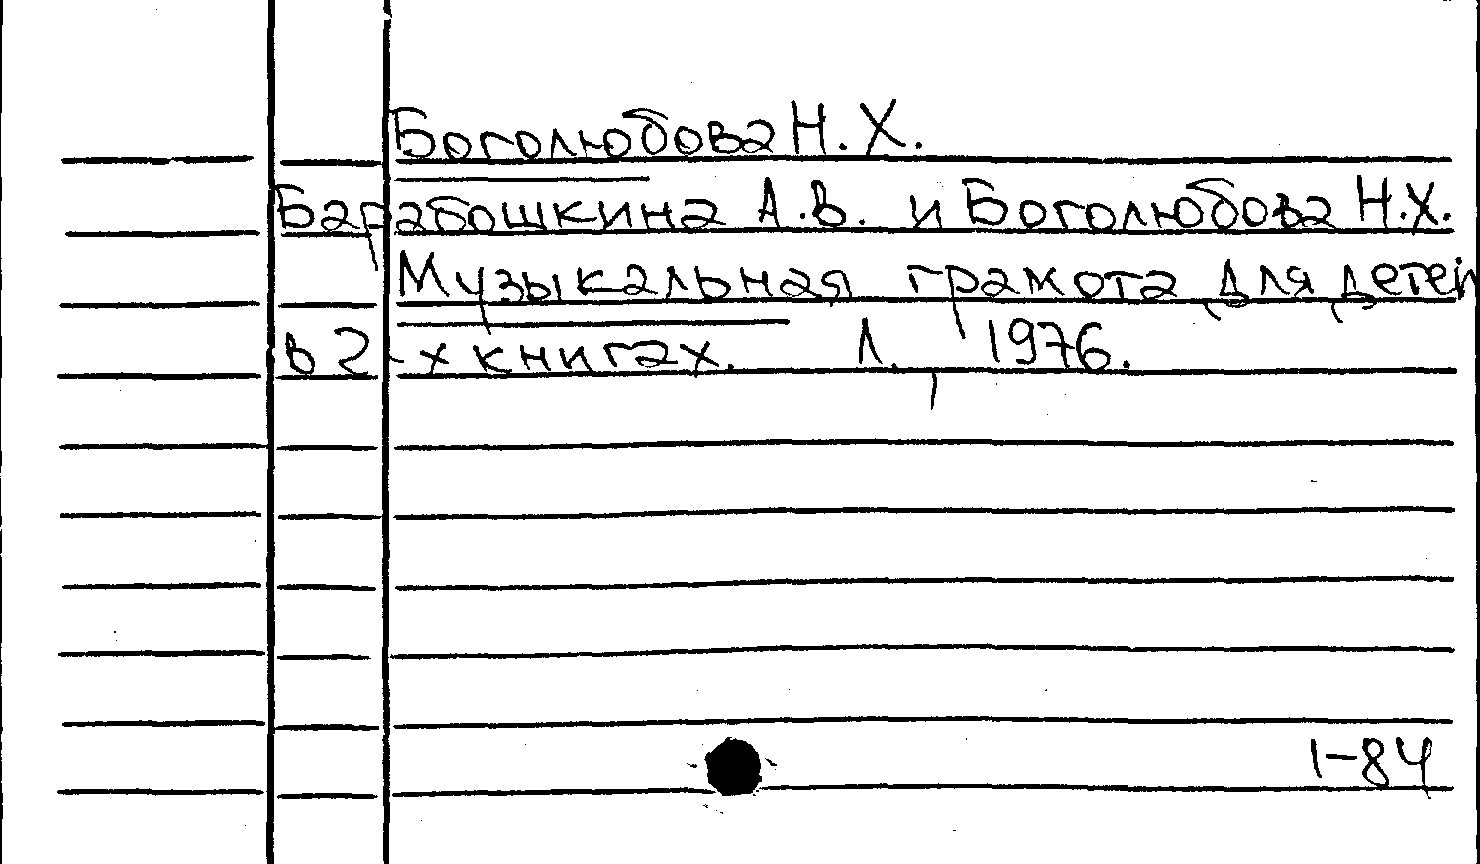 Боголюбова Н.Х.
Барабошкина А.В. и Боголюбова Н.Х.
Музыкальная грамота для детей
в 2-х книгах. Л., 1976.
1-84